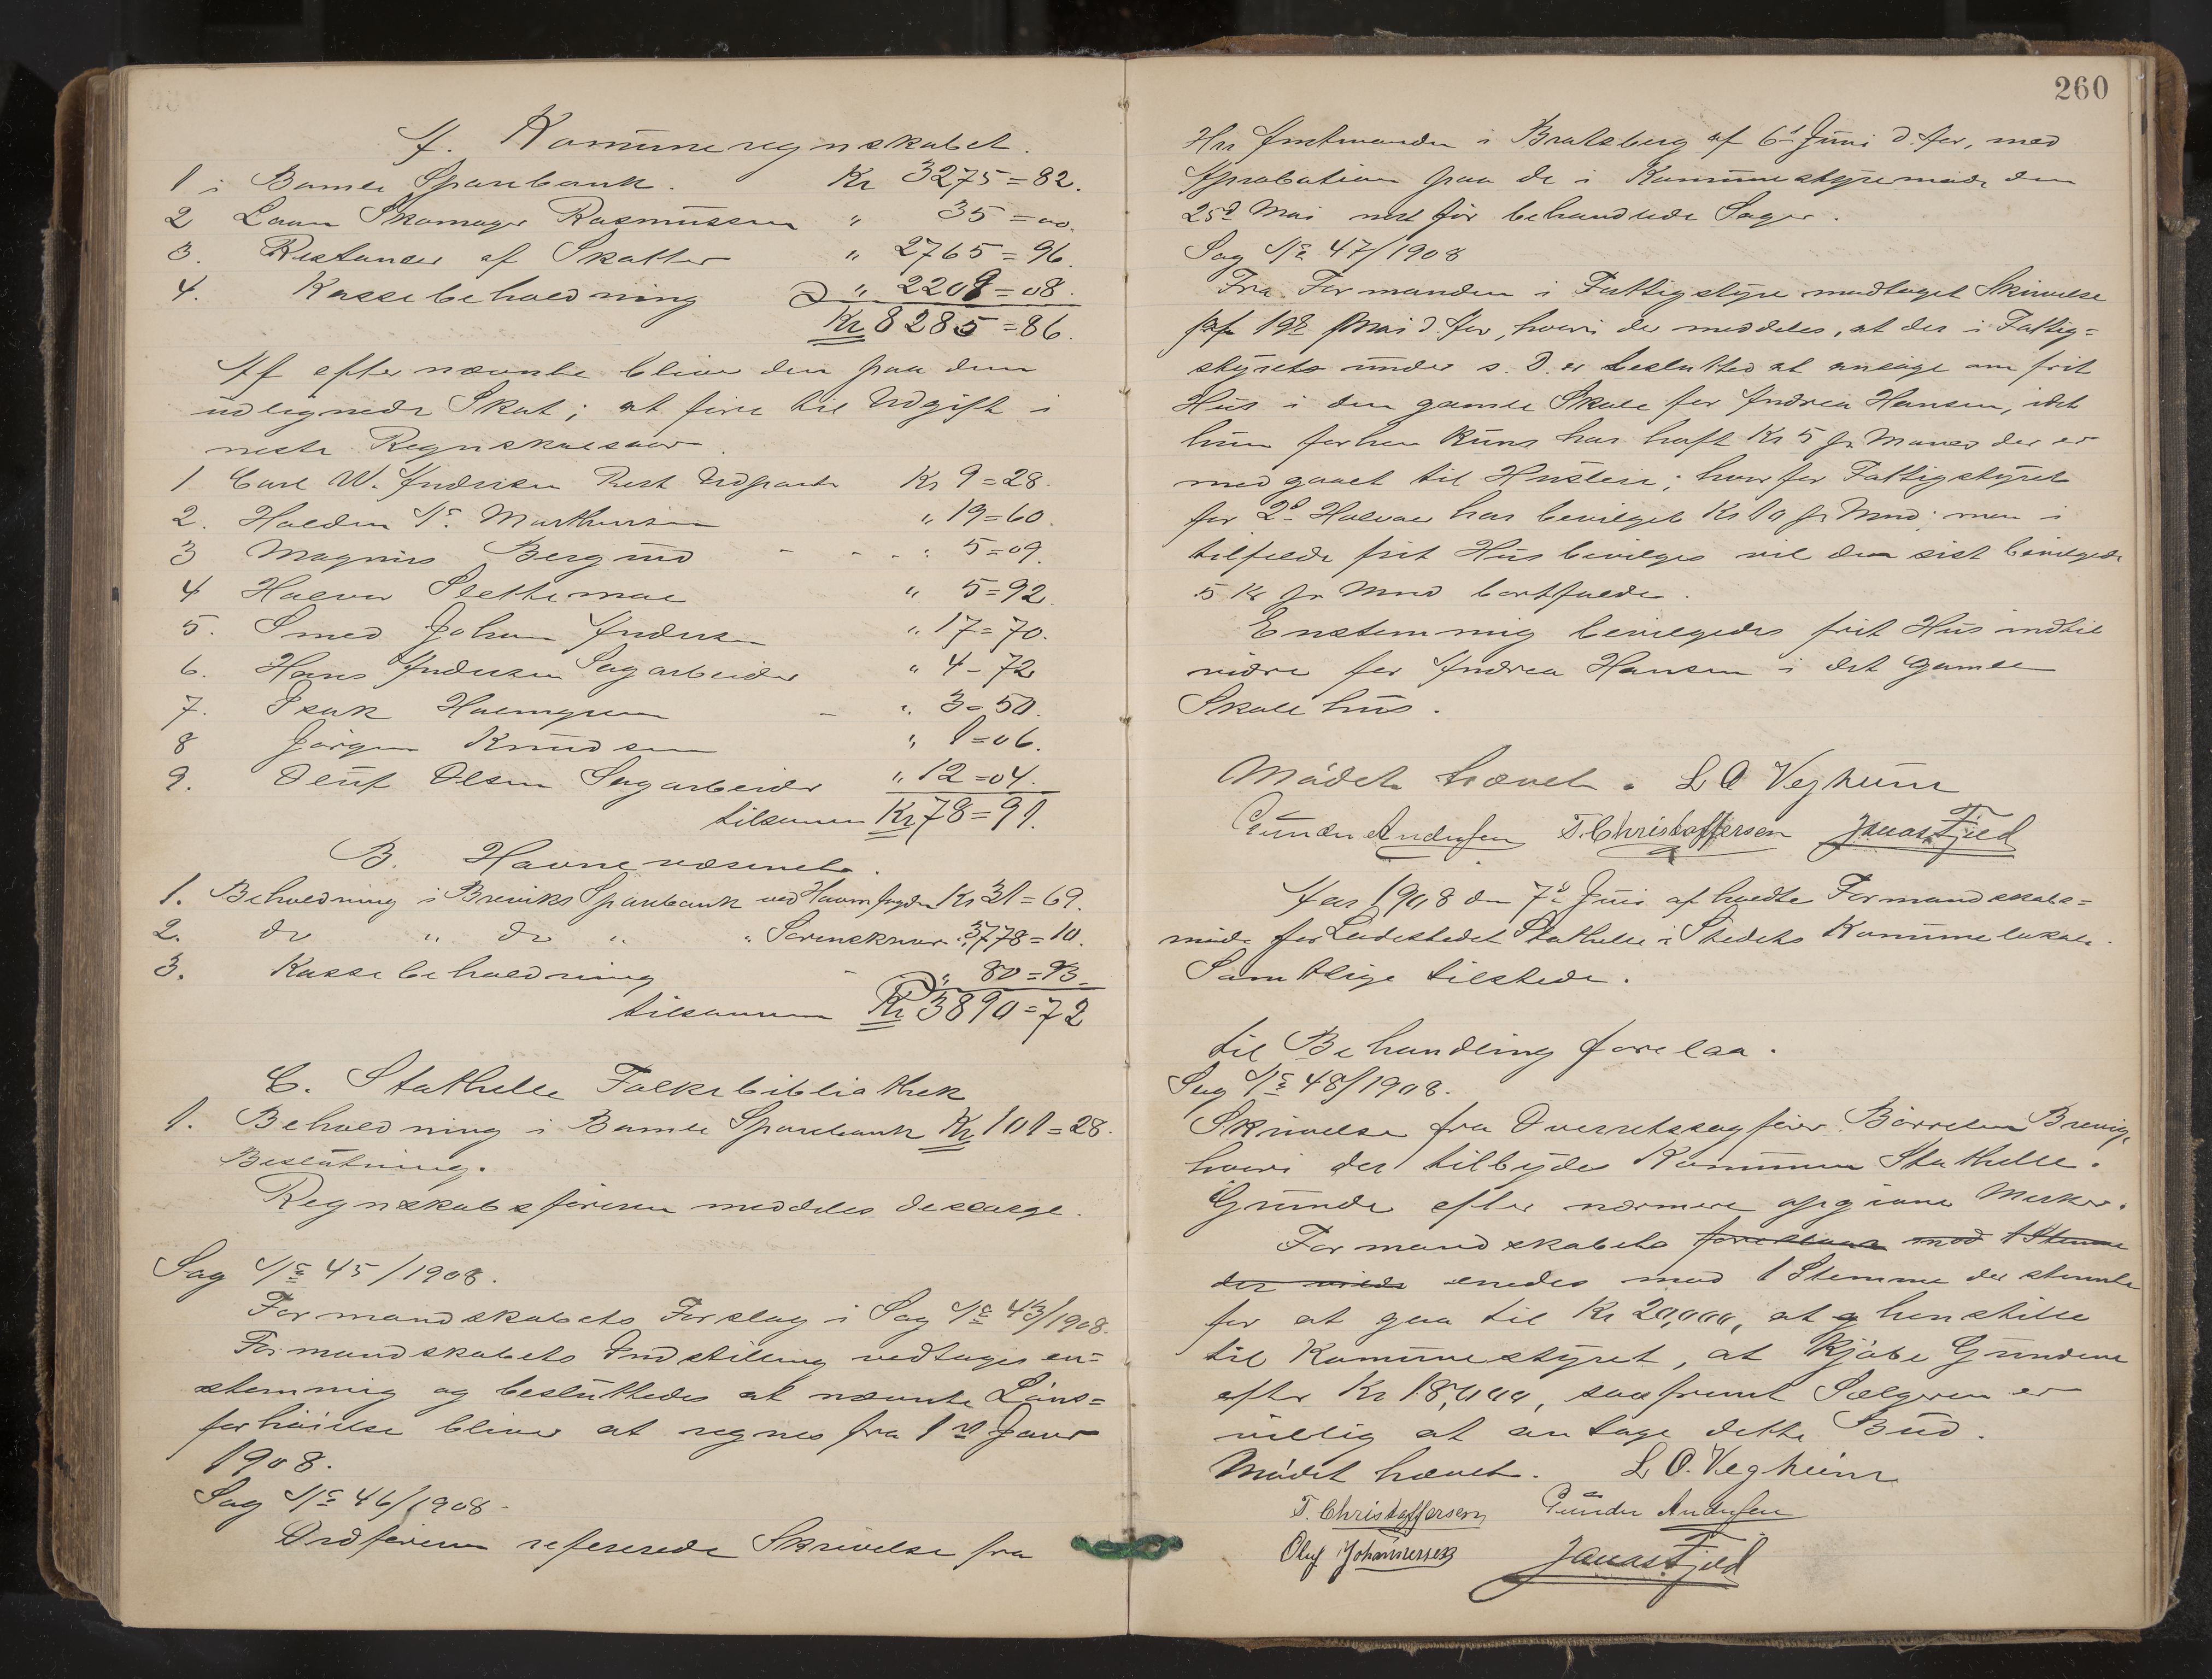 A. Kommuneregnskabet.
1 i Bamle Sparebank. Kr 3275=82.
2 Laan Skomager Rasmussen " 35=00.
3. Restancer af Skatter " 2765=96.
4. Kassebeholdning " 2209=08.
Kr 8285=86.
Af efternævnte bliver den paa dem
udlignede Skat; at føre til Udgift i
neste Regnskabsaar.
1 Carl W. Andersen Rest Udpante Kr 9=28.
2. Halvdan Mathisen " 19=60.
3 Magnus Berg - - - " 5=09.
4 Halvor Slettemoe " 5=92
5. Smed Johan Andersen " 17=70.
6. Hans Andersen Sagarbeider " 4-72
7. Isak Holmgren - " 3=50.
8 Jørgen Knudsen " 1=06.
9. Oluf Olsen Sagarbeider " 12=04.
tilsammen Kr 78=91.
B. Havnevæsenet.
1. Beholdning i Breviks Sparebank ved Havnefogden Kr 31=69.
2. do " do " " Sorenskriver " 3778=10.
3. Kassebeholdning - " 80=93.
tilsammen Kr 3890=72
C. Stathelle Folkebibliothek
1. Beholdning i Bamle Sparebank Kr 101=28.
Beslutning.
Regnskabsføreren meddeles descarge.
Sag No 45/1908.
Formandskabets Forslag i Sag No 43/1908.
Formandskabets Indstilling vedtages en=
stemmig og besluttedes at nævnte Løns=
forhøielse bliver at regnes fra 1st Januar
1908.
Sag No 46/1908.
Ordføreren refererede Skrivelse fra
260
Hrr Amtmanden i Bratsberg af 6te Juni d. Aar, med
Aprobation paa de i Kommunestyremøde den
25de Mai nest før behandlede Sager.
Sag No 47/1908
Fra Formanden i Fattigstyre modtaget Skrivelse
af 19de Mai d. Aar, hvori der meddeles, at der i Fattig=
styrets under s. D. er besluttet at ansøge om frit
Hus i den gamle Skole for Andrea Hansen, idet
hun forhen kuns har haft Kr 5 pr Maaned der er
medgaaet til Husleie; hvorfor Fattigstyret
for 2det Halvaar har bevilget Kr 10 pr Mnd; men i
tilfelde frit Hus bevilges vil den sist bevilgede
5 Kr pr Mnd bortfalde.
Enstemmig bevilgedes frit Hus indtil
videre for Andrea Hansen i det gamle
Skolehus.
Mødet hævet. L O Vegheim
Gunder Andersen T. Christoffersen Jonas Fjeld
Aar 1908 den 7de Juni afholdte Formandskabs=
møde for Ladestedet Stathelle i Stedets Kommunelokale.
Samtlige tilstede.
til Behandling forelaa.
Sag No 48/1908.
Skrivelse fra Overretssagfører Børresen Brevig,
hvori der tilbydes Kommunen Stathelle.
Grunde efter nærmere opgivne Merker.
Formandskabets foreslaar med 1 Stemme
der vilde enedes med 1 Stemme der stemte
for at gaa til Kr 20,000, at henstille
til Kommunestyret, at Kjøbe Grundene
efter Kr 18,000, saafremt Sælgeren er
villig at antage dette Bud.
Mødet hævet. L O. Vegheim
T. Christoffersen Gunder Andersen
Oluf Johannessen Jonas Fjeld